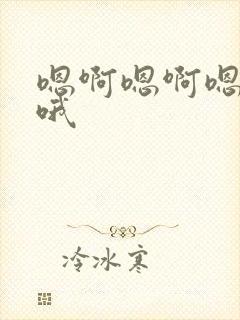 嗯啊嗯啊嗯
哦
冷冰寒